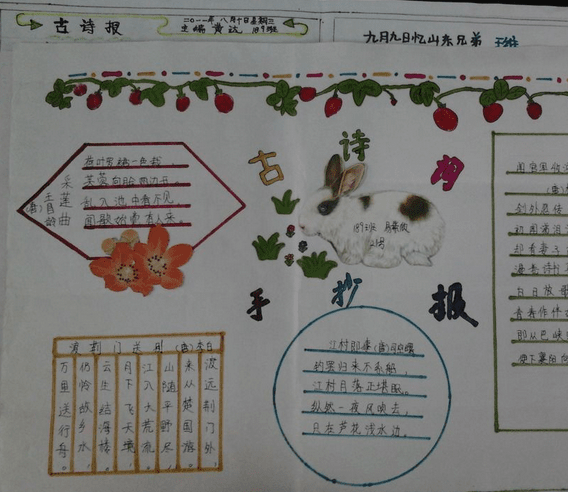 古诗报
二〇一一年八月十日星期三
主编 189班
九月九日忆山东兄弟 王维
古诗
手抄报
采莲曲
(唐)王昌龄
荷叶罗裙一色裁,
芙蓉向脸两边开。
乱入池中看不见,
闻歌始觉有人来。
189班
渡荆门送别 (唐)李白
渡远荆门外,
来从楚国游。
山随平野尽,
江入大荒流。
月下飞天镜,
云生结海楼。
仍怜故乡水,
万里送行舟。
江村即事 (唐)司空曙
钓罢归来不系船,
江村月落正堪眠。
纵然一夜风吹去,
只在芦花浅水边。
闻官军收
(唐)
剑外忽传
初闻涕泪
却看妻子
漫卷诗
白日放歌
青春作伴
即从巴峡
便下襄阳向